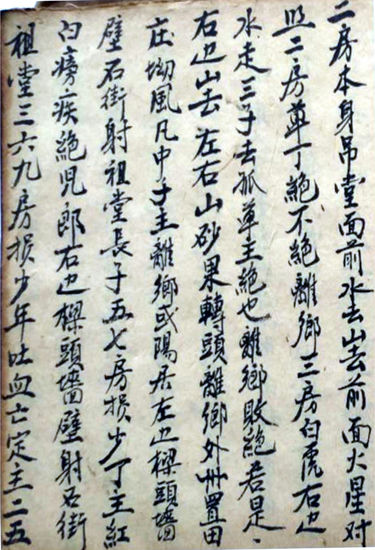 二房本身吊堂面前水去山去前面火星对
照二房單丁絶不絶離鄉三房白虎右边
水走三子去孤單主絶也離鄉敗絶君是〻
右边山去左右山砂果轉頭離鄉外州置田
庄坳風凡中子主離鄉或陽居左边樑頭墻
壁石街射祖堂長子五七房損少丁主紅
白痨〻疾絶児郎右边樑頭墻壁射石街
祖堂三六九房損少年吐血亡定主二五